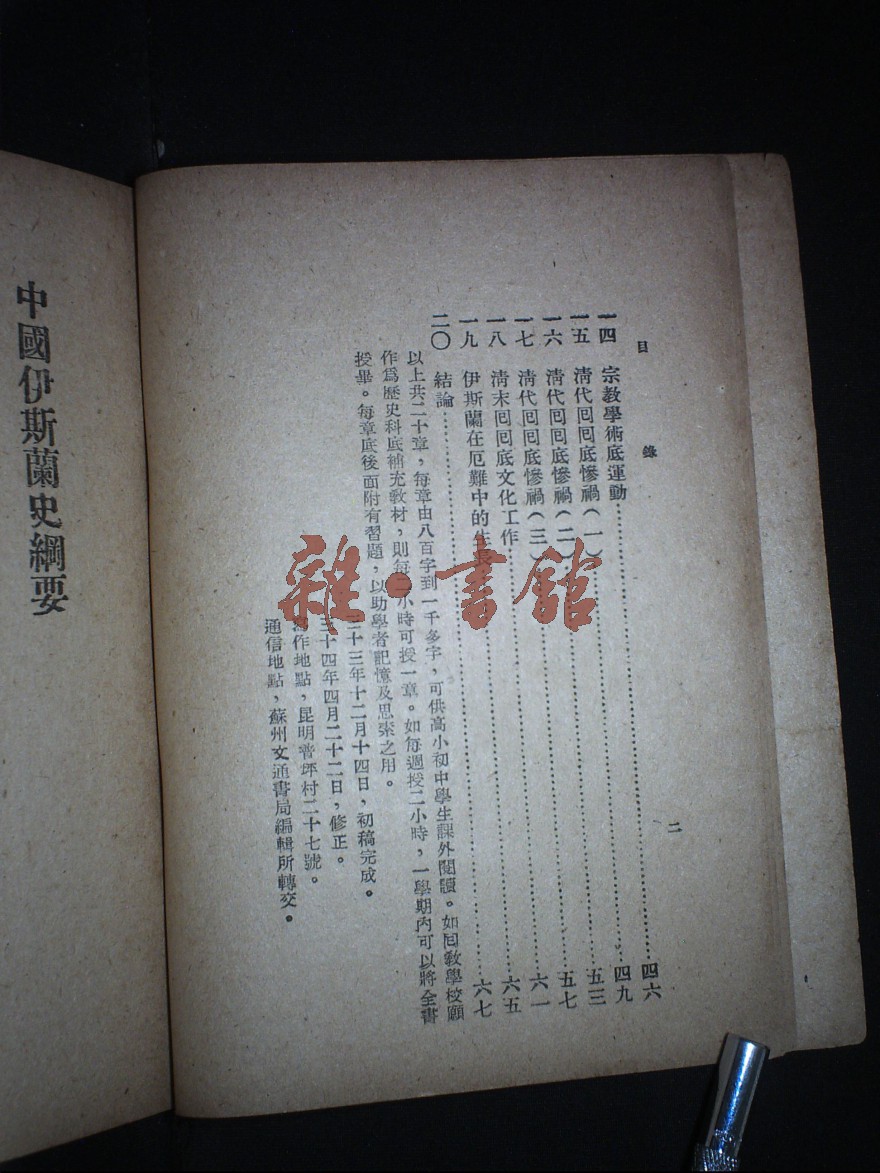 目錄 二
一四 宗教學術底運動……四六
一五 淸代囘囘底慘禍(一)……四九
一六 淸代囘囘底慘禍(二)……五三
一七 淸代囘囘底慘禍(三)……五七
一八 淸末囘囘底文化工作……六一
一九 伊斯蘭在厄難中的生長……六五
二〇 結論……六七
以上共二十章,每章由八百字到一千多字,可供高小初中學生課外閱讀。如囘敎學校願
作爲歷史科底補充敎材,則每一小時可授一章。如每週授二小時,一學期內可以將全書
授畢。每章底後面附有習題,以助學者記憶及思索之用。
三十三年十二月十四日,初稿完成。
三十四年四月二十二日,修正。
寫作地點,昆明普坪村二十七號。
通信地點,蘇州文通書局編輯所轉交。
中國伊斯蘭史綱要
雜·書館